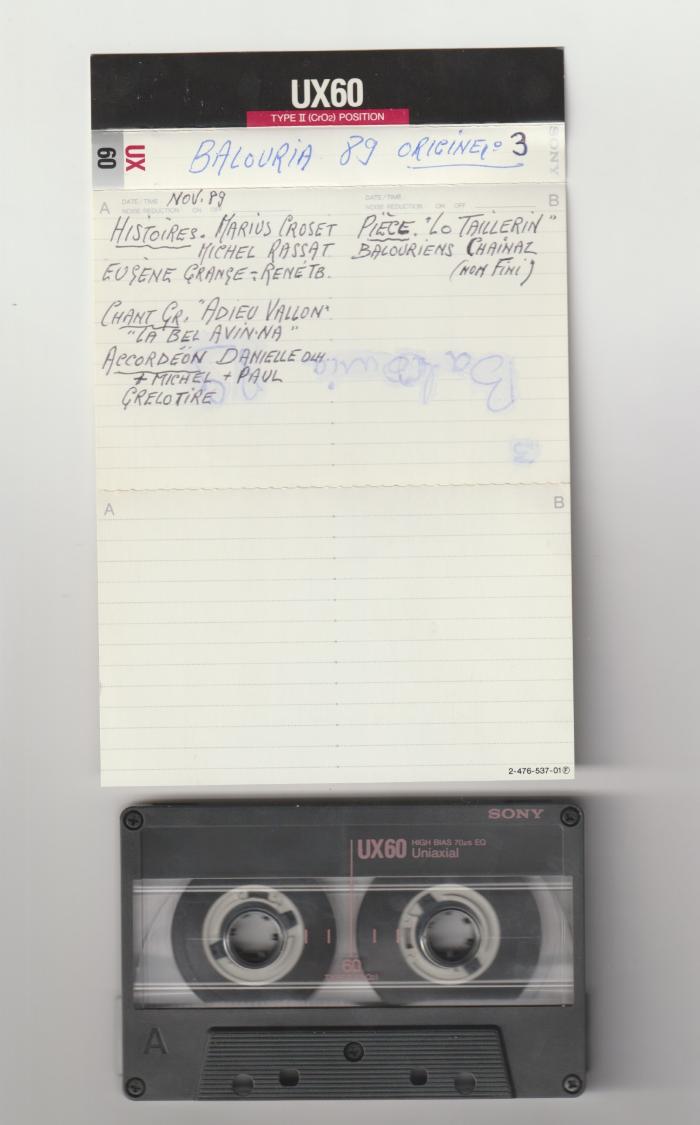 UX60
TYPE II (CrO2) POSITION
UX
60
BALOURIA 89 ORIGINE N° 3
SONY
A DATE/TIME NOV. 89
NOISE REDUCTION ON OFF
HISTOIRES. MARIUS CROSET
MICHEL RASSAT
EUGÈNE GRANGE - RENÉ TB.
CHANT GR. "ADIEU VALLON"
"LA BEL AVIN-NA"
ACCORDÉON DANIELLE
+ MICHEL + PAUL
GRELOTIRE
DATE/TIME B
NOISE REDUCTION ON OFF
PIÈCE. "LO TAILLERIN"
BALOURIENS CHAINAZ
(NON FINI)
Balouria
3
A
B
2-476-537-01
SONY
UX60 HIGH BIAS 70µs EQ
Uniaxial
60
A